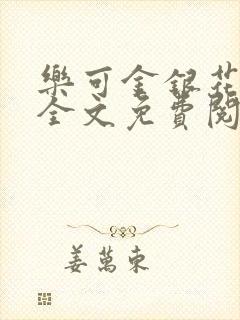 樂可金銀花
全文免費閱
姜萬東